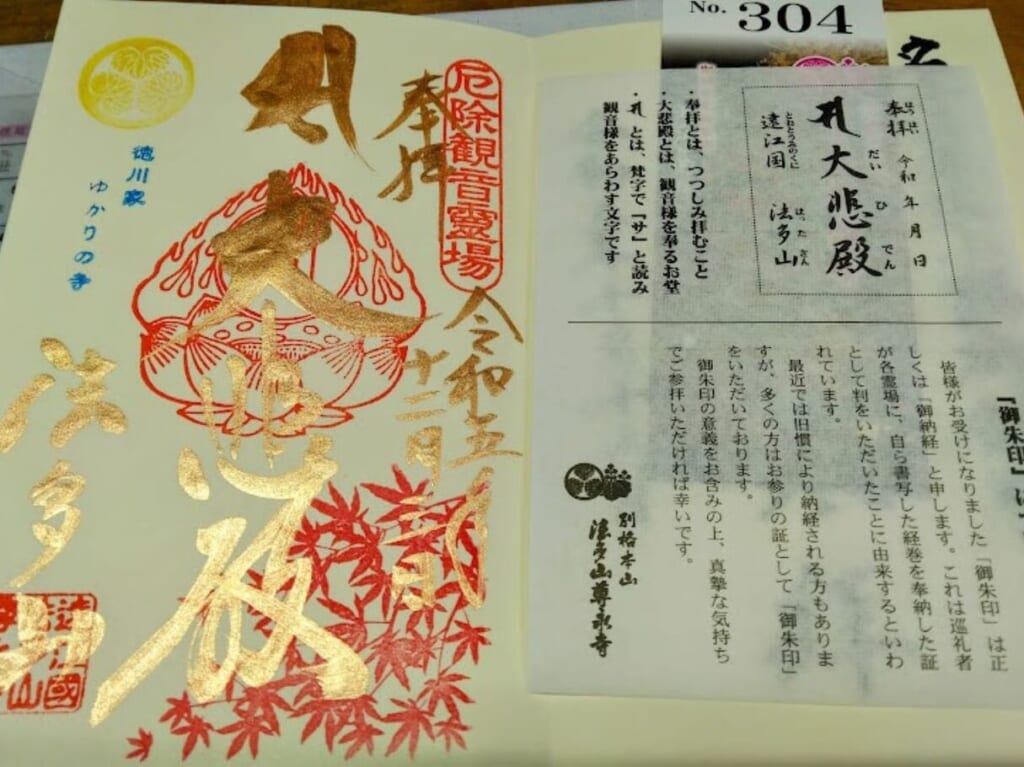 No. 304
厄除観音霊場
奉拝
令和五年
十二月
大悲殿
法多山
徳川家
ゆかりの寺
奉拝 令和 年 月 日
はっぱい
大悲殿
だい ひ でん
遠江国 法多山
とおとうみのくに はったさん
・奉拝とは、つつしみ拝むこと
・大悲殿とは、観音様を奉るお堂
とは、梵字で「サ」と読み
観音様をあらわす文字です
「御朱印」
皆様がお受けになりました「御朱印」は正
しくは「御納経」と申します。これは巡礼者
が各霊場に、自ら書写した経巻を奉納した証
として判をいただいたことに由来するといわ
れています。
最近では旧慣により納経される方もありま
すが、多くの方はお参りの証として「御朱印」
をいただいております。
御朱印の意義をお含みの上、真摯な気持ち
でご参拝いただければ幸いです。
別格本山
法多山尊永寺